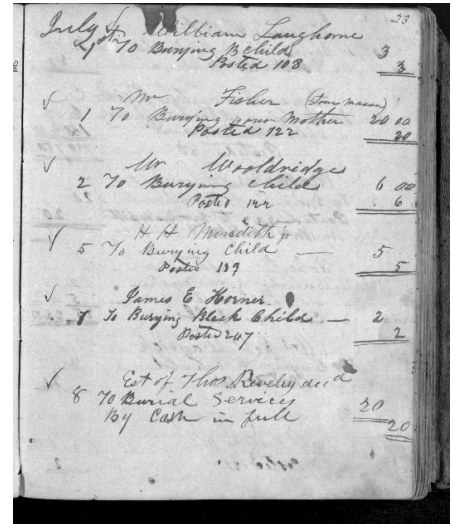 23
July √ William Langhorne
1st To Burying B child 3
Posted 108 3
√ Mr Fisher (Stone mason)
1 To Burying your Mother 20 00
Posted 122 20
√ Mr Wooldridge
2 To Burying child 6 00
Posted 122 6
√ H H Meredith
5 To Burying Child — 5
Posted 5
√ James E Horner
7 To Burying Black Child — 2
Posted 247 2
√ Est of Thos decd
8 To Burial Services 20
By Cash in full 20